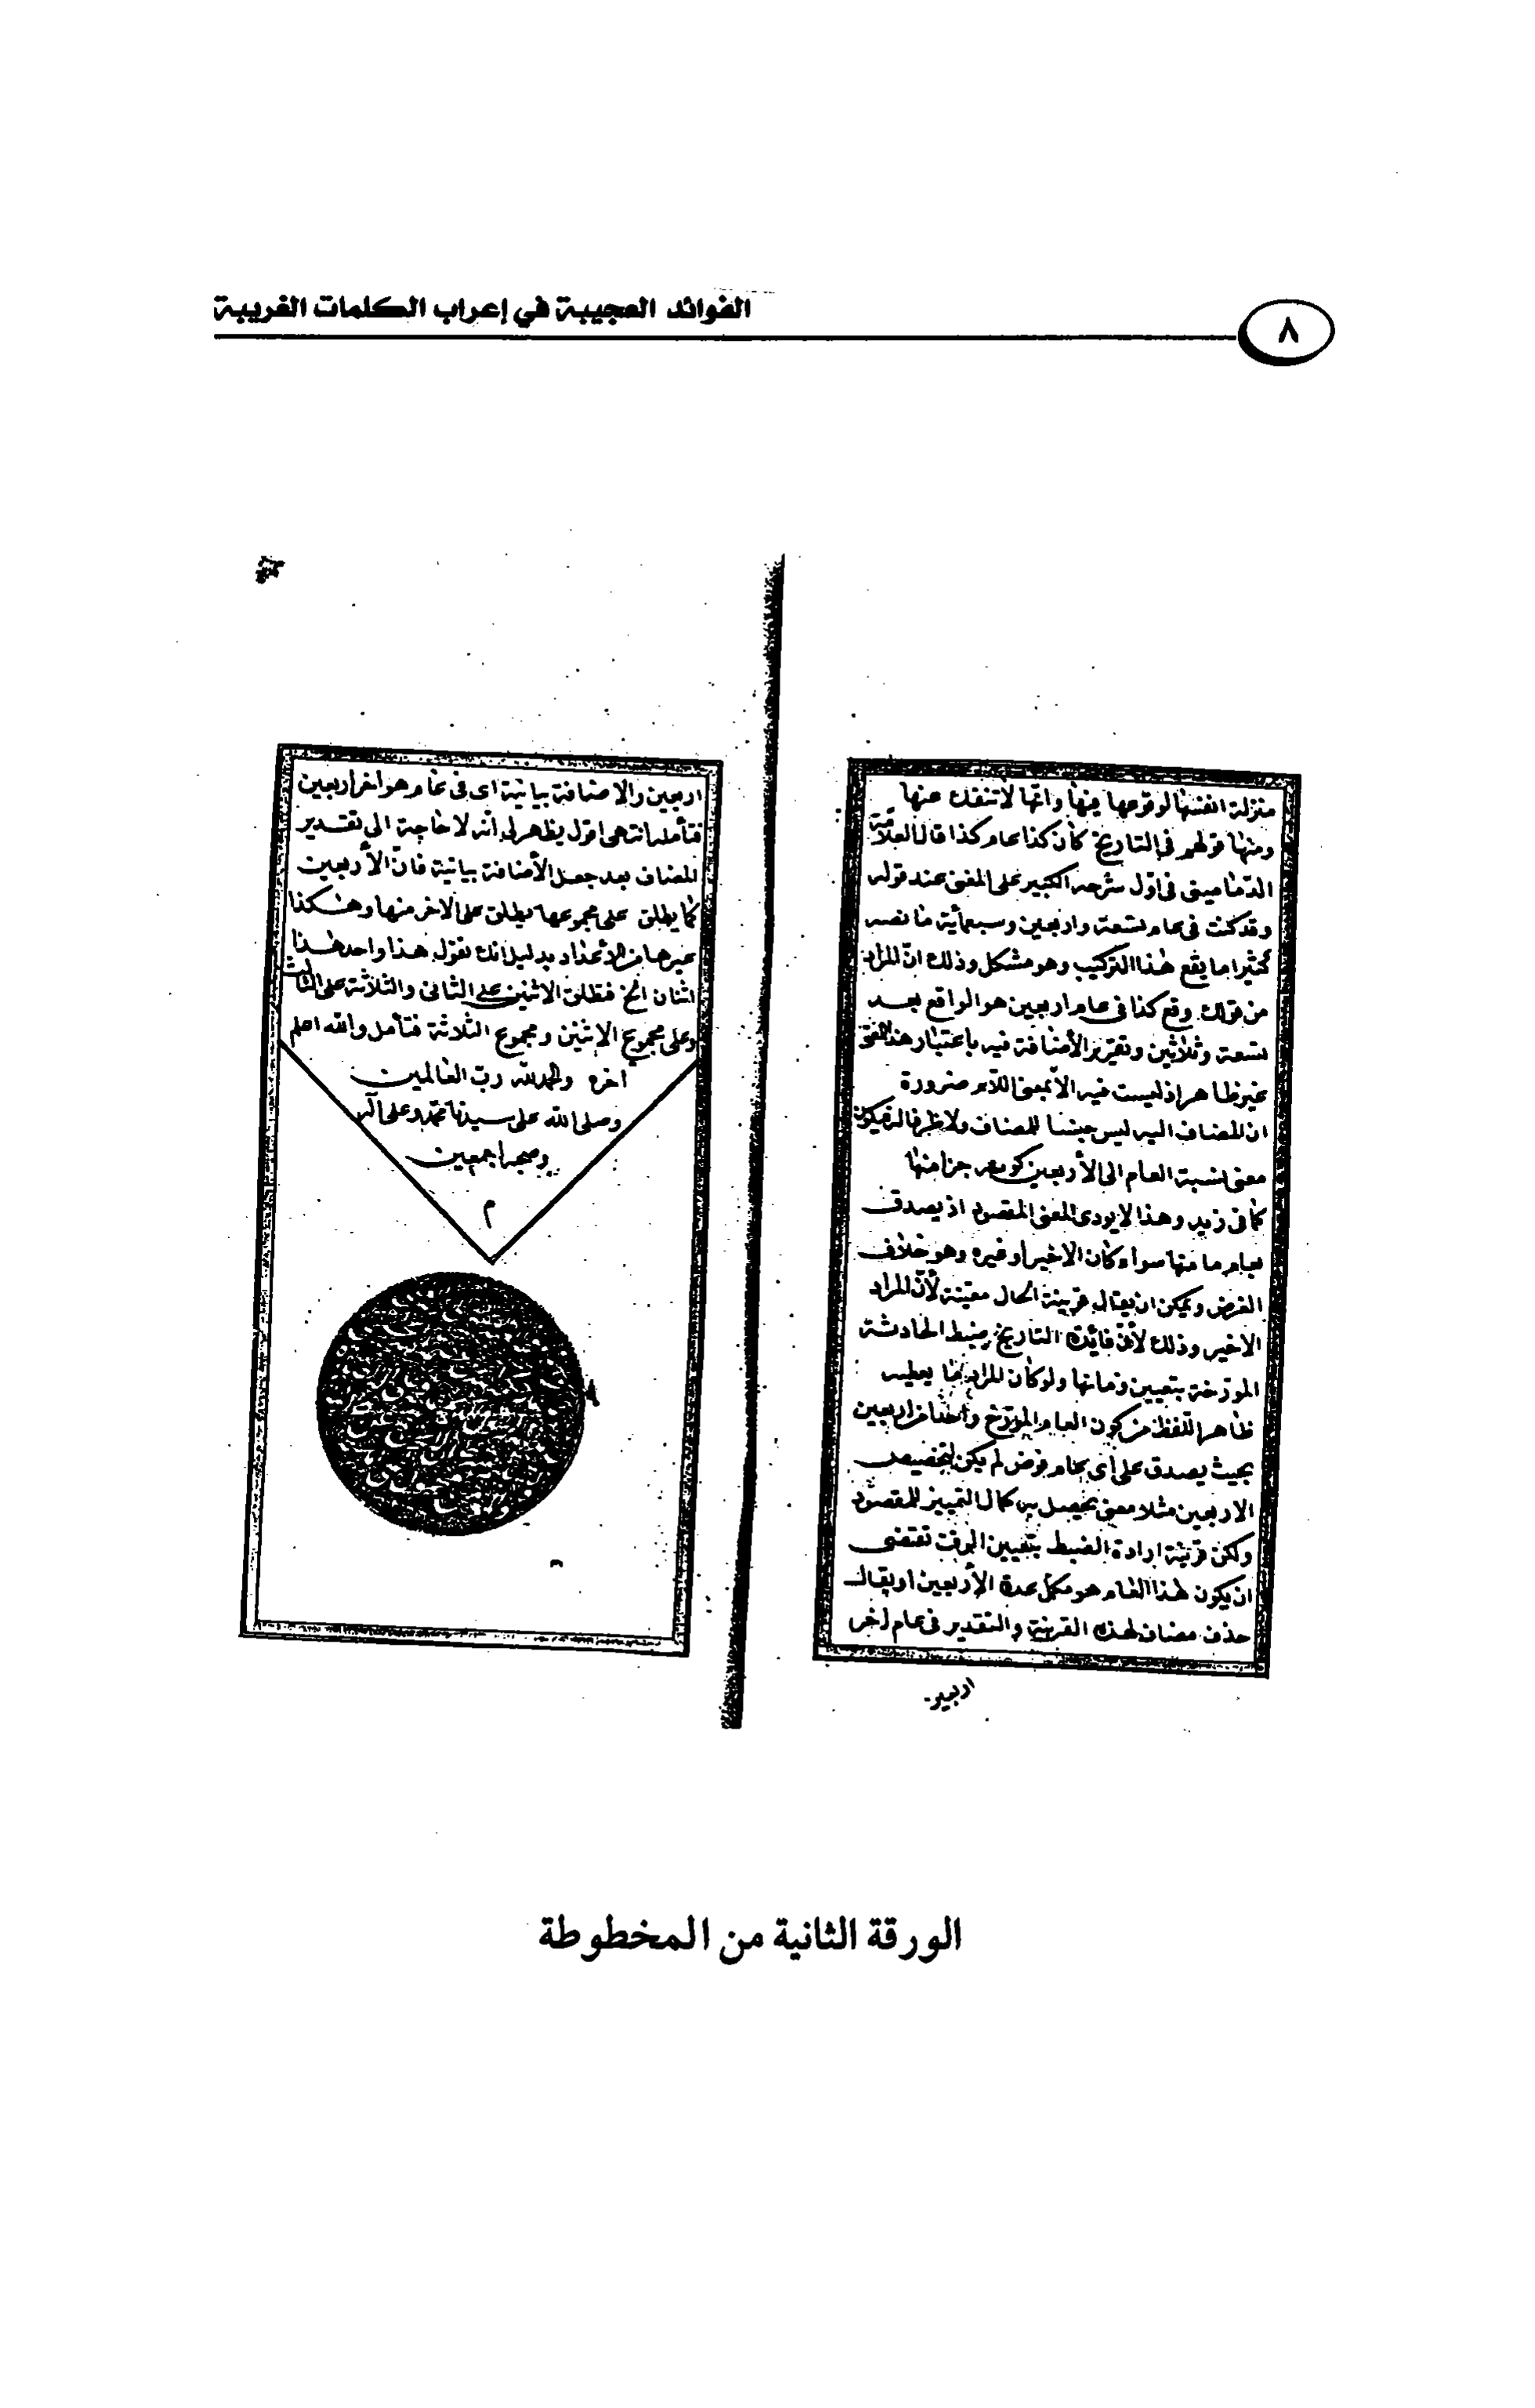 ٨
الفوائد العجيبة في إعراب الكلمات الغريبة
منزلة انفسها لوقوعها فيها وانها لا تنفك عنها
ومنها قولهم في التاريخ كان كذا عام كذا قال العلامة
الدماميني في اول شرحه الكبير على المغني عند قوله
وقد كنت في عام تسعة واربعين وسبعمأية ما نصه
كثيرا ما يقع هذا التركيب وهو مشكل وذلك انّ المراد
من قولك وقع كذا في عام اربعين هو الواقع بعد
تسعة وثلاثين وتقرير الأضافة فيه باعتبار هذا المعنى
غير ظاهر اذ ليست فيه الا بمعنى اللام ضرورة
ان المضاف اليه ليس جنسا للمضاف ولا ظرفا له فيكون
معنى نسبة العام الى الأربعين كونه جزا منها
كما في زيد وهذا لا يودى المعنى المقصود اذ يصدق
بعام ما منها سواء كان الاخير او غيره وهو خلاف
الغرض ويمكن ان يقال قرينة الحال معينة لأنّ المراد
الاخير وذلك لأنّ فائدة التاريخ ضبط الحادثة
المورخة بتعيين زمانها ولو كان المراد ما يعطيه
ظاهر اللفظ من كون العام المورّخ واحدا من اربعين
بحيث يصدق على اي عام فرض لم يكن لتخصيص
الاربعين مثلا معنى يحصل به كمال التمييز للمقصود
ولكن قرينة ارادة الضبط بتعيين الوقت تقتضي
ان يكون هذا العام هو مكمل عدة الأربعين او يقال
حذف مضاف لهذه القرينة والتقدير في عام اخر
اربعين
اربعين والاضافة بيانية اى في عام هو اخر اربعين
فتأمله انتهى اقول يظهر لي انه لا حاجة الى تقدير
المضاف بعد جعل الأضافة بيانية فانّ الأربعين
كما يطلق على مجموعها يطلق على الاخر منها وهكذا
غيرها من الأعداد بدليل انك تقول هذا واحد هذا
اثنان الخ فتطلق الاثنين على الثاني والثلاثة على الثالث
وعلى مجموع الاثنين ومجموع الثلاثة فتأمل والله اعلم
اخره والحمد لله رب العالمين
وصلى الله على سيدنا محمد وعلى آله
وصحبه اجمعين
م
الورقة الثانية من المخطوطة